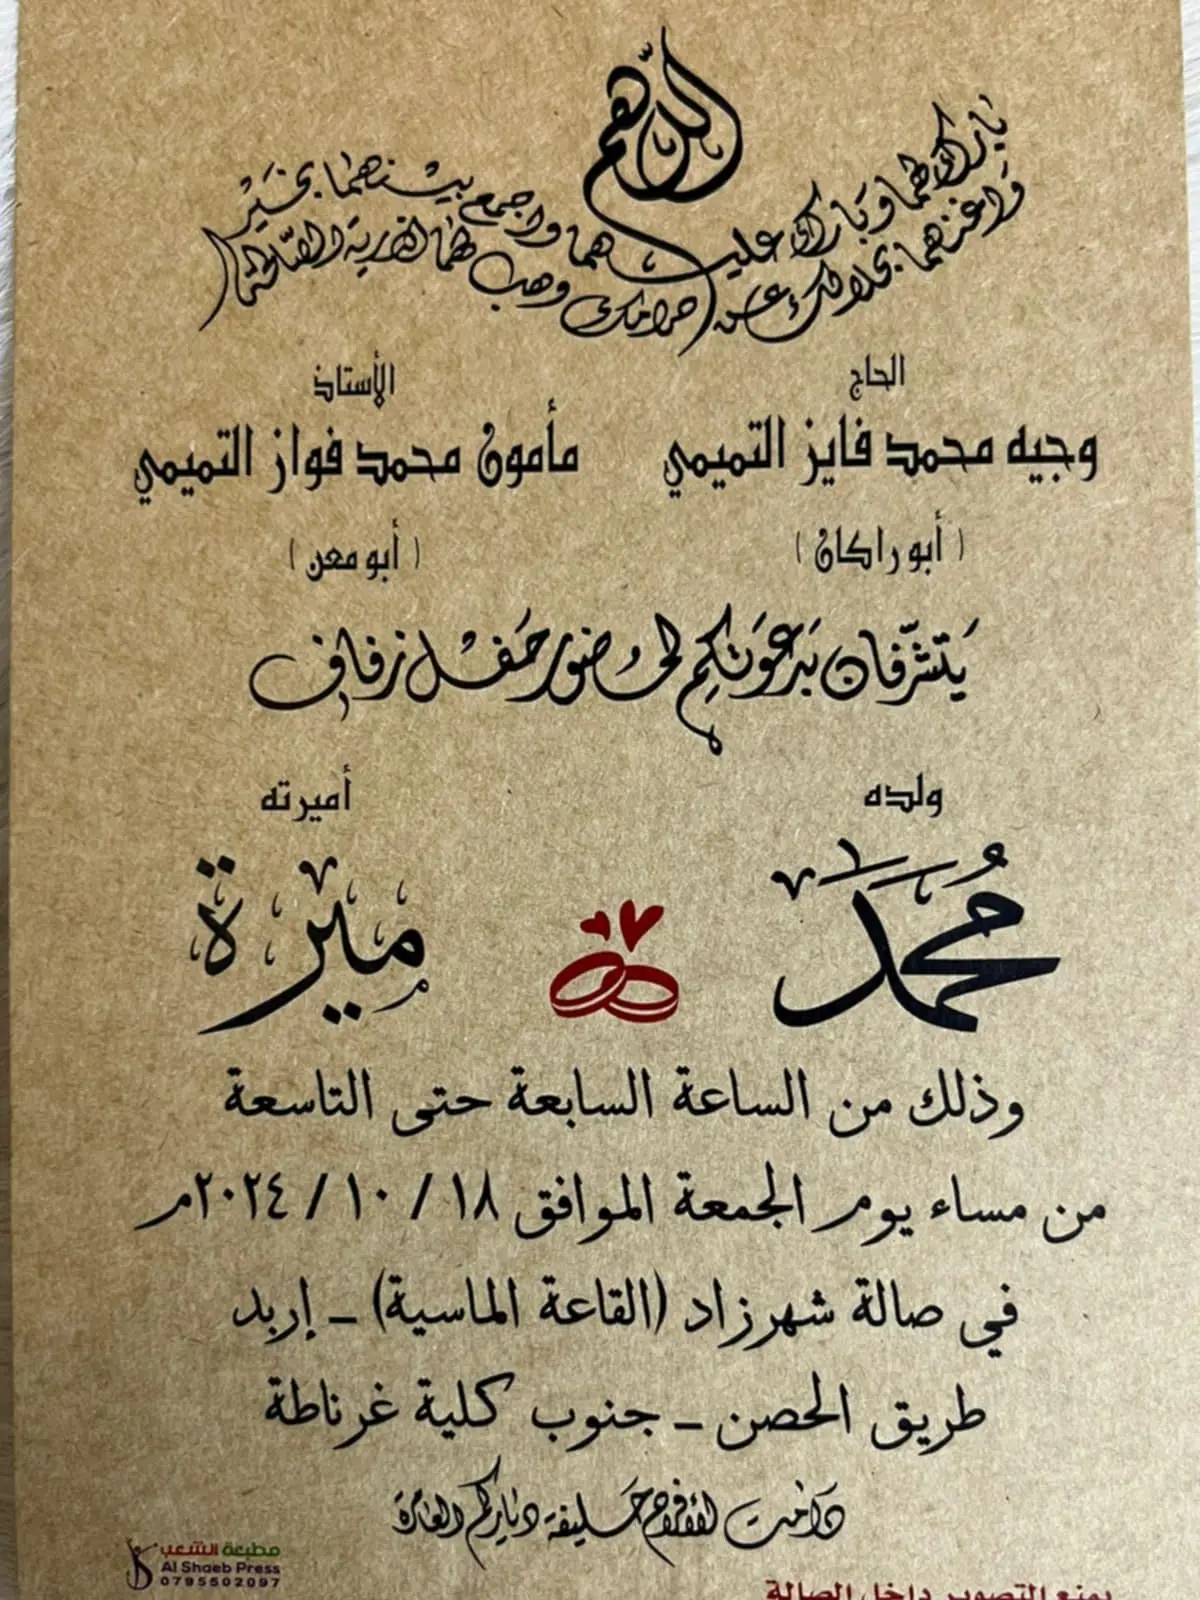 اللهم
بارك لهما وبارك عليهما واجمع بينهما بخير
وأغنهما بحلالك عن حرامك وهب لهما الذرية الصالحة
الحاج
وجيه محمد فايز التميمي
( أبو راكان )
الأستاذ
مأمون محمد فواز التميمي
( أبو معن )
يتشرفان بدعوتكم لحضور حفل زفاف
ولده
محمد
أميرته
ميرة
وذلك من الساعة السابعة حتى التاسعة
من مساء يوم الجمعة الموافق ١٨ / ١٠ / ٢٠٢٤م
في صالة شهرزاد (القاعة الماسية) - إربد
طريق الحصن - جنوب كلية غرناطة
دامت الأفراح حليفة دياركم العامرة
مطبعة الشعب
Al Shaeb Press
0795502097
يمنع التصوير داخل الصالة